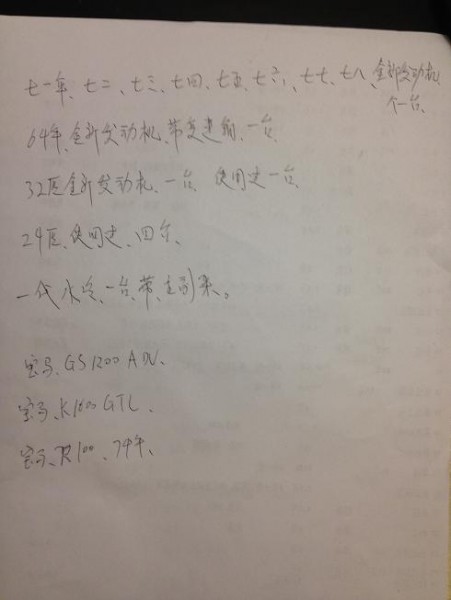 七一年、七二、七三、七四、七五、七六、七七、七八、全新发动机
个一台、
64年、全新发动机、带变速箱、一台、
32匹全新发动机、一台、使用过一台、
24匹、使用过、四台、
一代水冷、一台、带主引来。
宝马、GS1200 ADV、
宝马、K1600 GTL、
宝马、R100、74年、